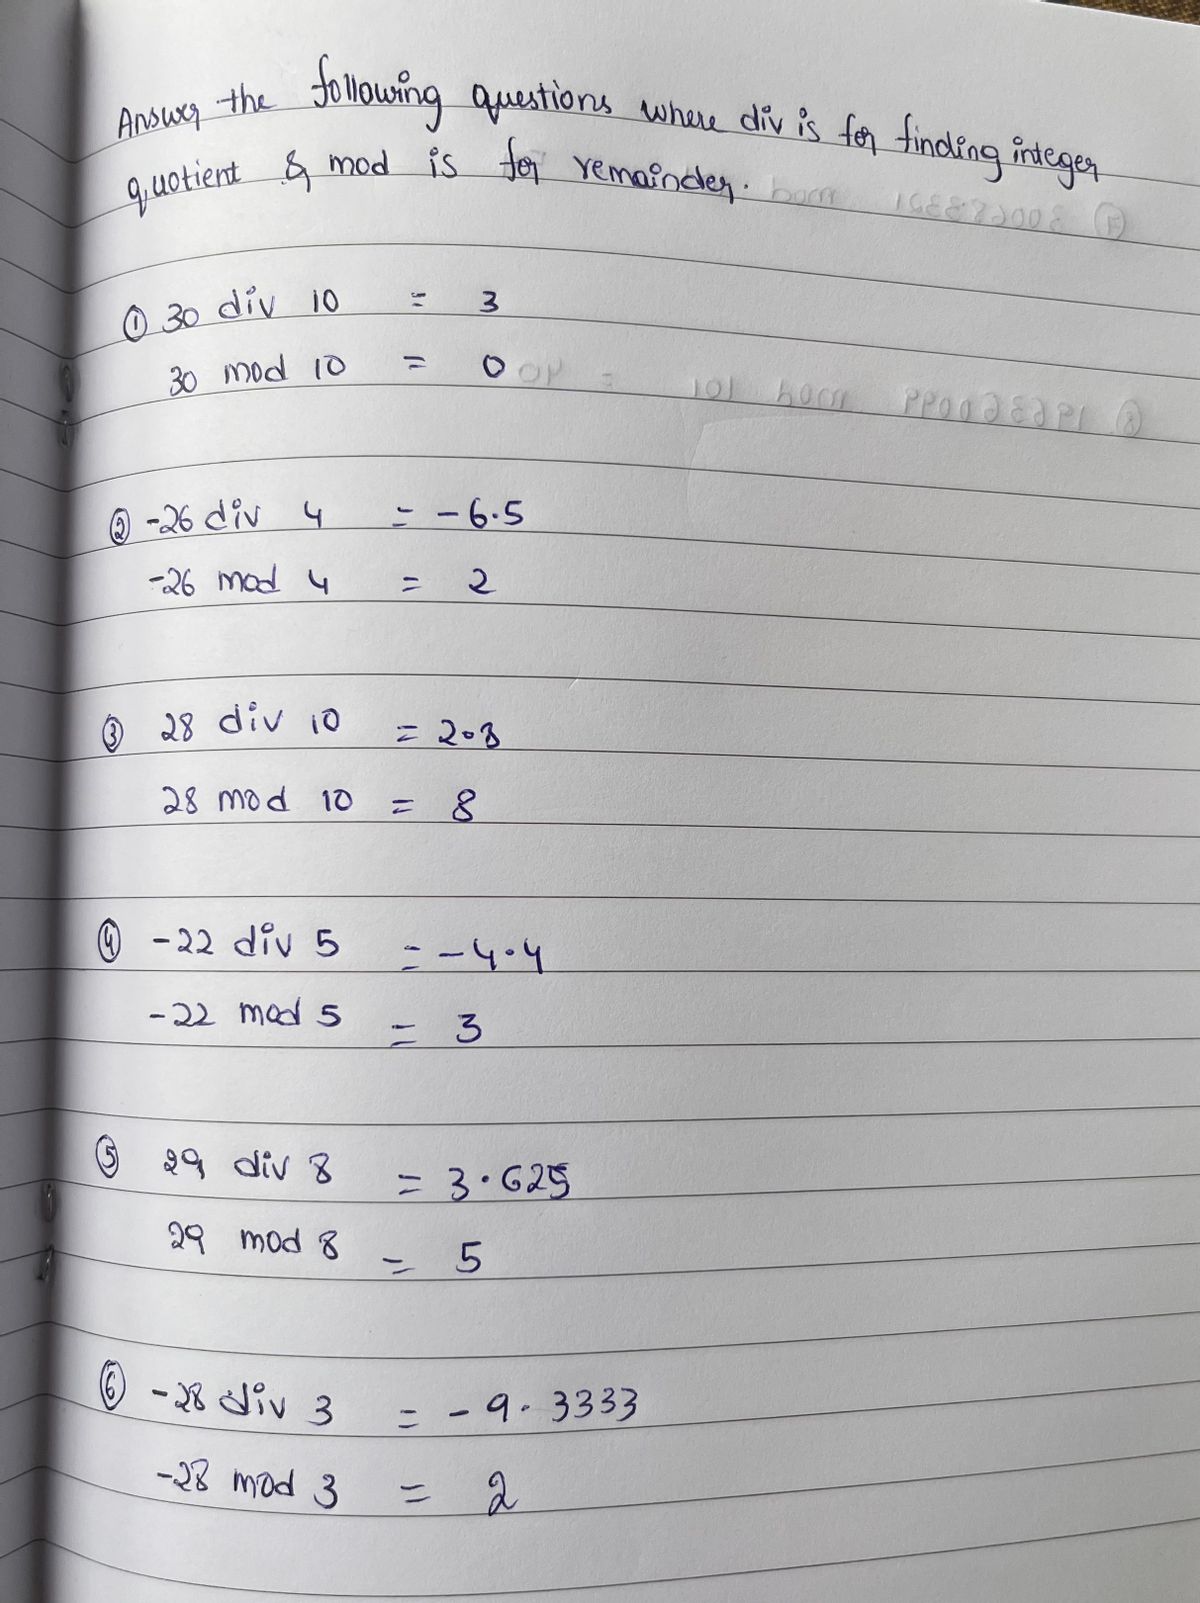 Answer the following questions where div is for finding integer
quotient & mod is for remainder.
① 30 div 10 = 3
30 mod 10 = 0
② -26 div 4 = -6.5
-26 mod 4 = 2
③ 28 div 10 = 2.8
28 mod 10 = 8
④ -22 div 5 = -4.4
-22 mod 5 = 3
⑤ 29 div 8 = 3.625
29 mod 8 = 5
⑥ -28 div 3 = -9.3333
-28 mod 3 = 2